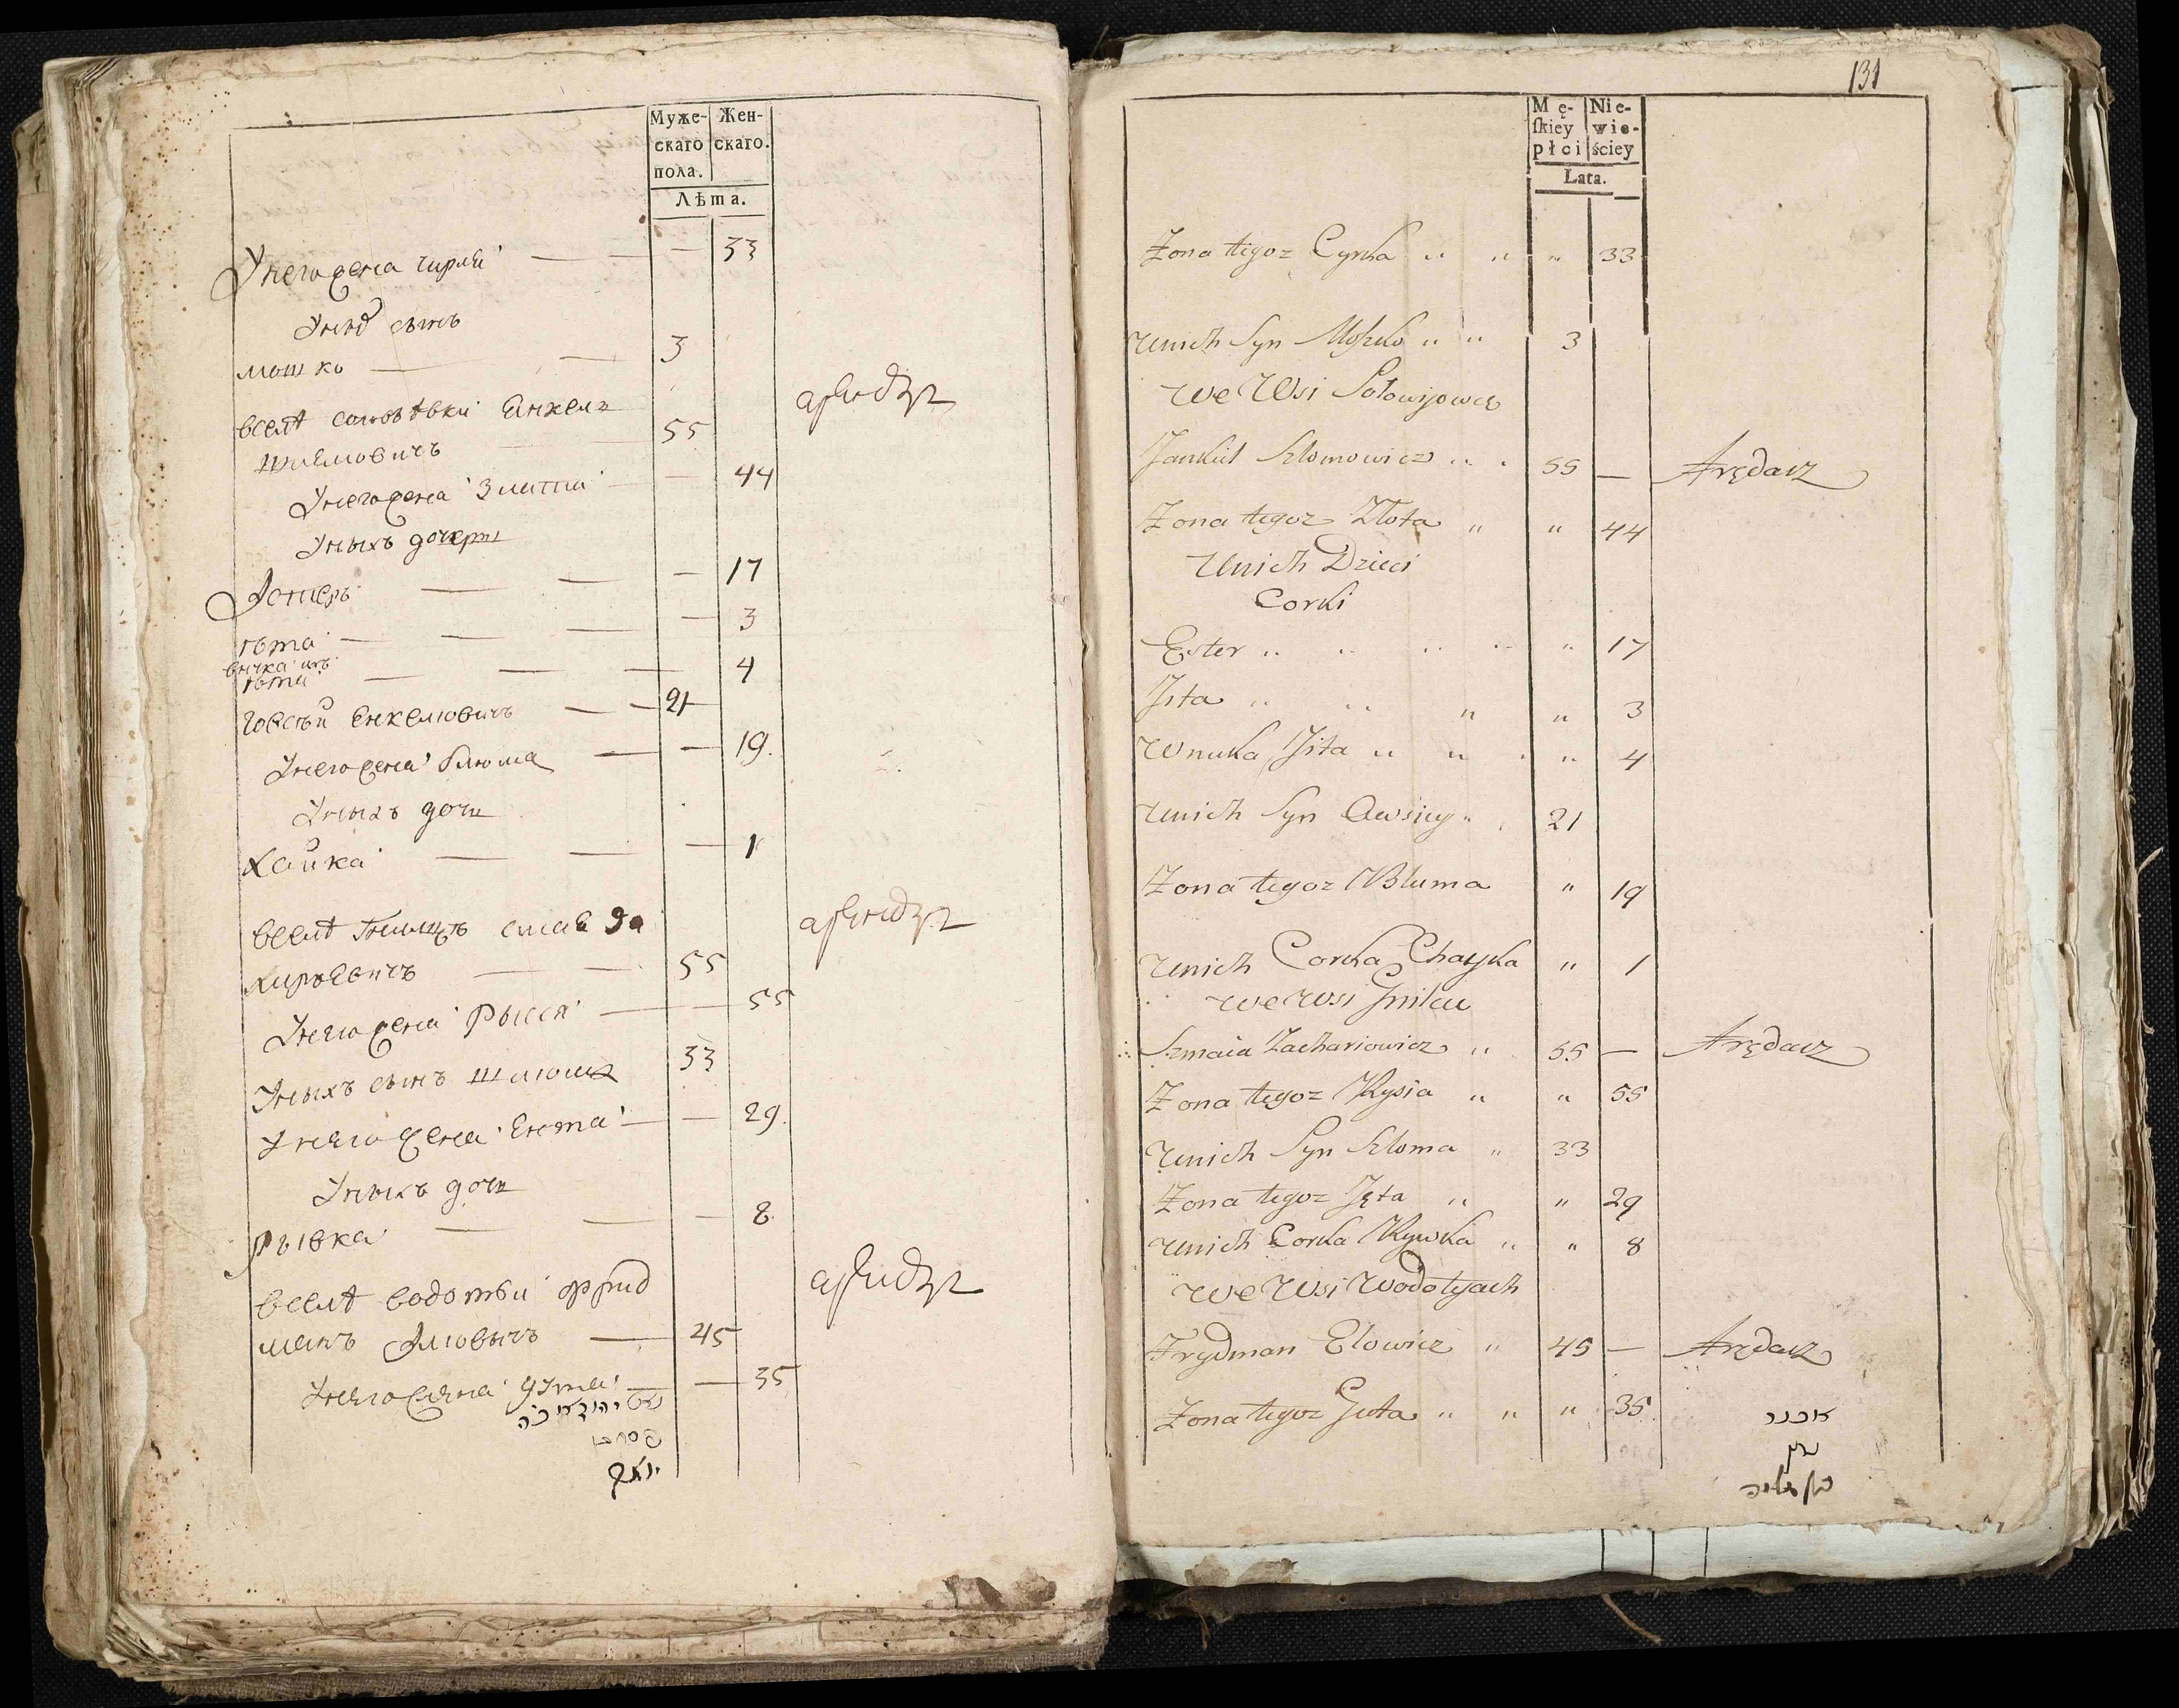 Муже-
скаго
пола.
Жен-
скаго.
Лѣта.
Унего жена цирля — — — 33
Уныхъ сынъ
мошко — — 3
вселѣ соловѣвки Янкель арендар
Шлемовичъ 55
Унегожена Злата — — 44
Уныхъ дочери
Эстеръ — — — 17
юта — — — — 3
внучка ихъ
юта — — — 4
говсѣй Енкелювичъ — — 21
Унегожена блюма — — 19.
Уныхъ дочь
Хайка — — — 1
вселѣ смая за арендар
харъевичъ — — 55
Унего жена Рыся — — 55
Уныхъ сынъ шлюма 33
Унего жена Ента — — 29.
Уныхъ дочь
Рывка — — — 8.
вселѣ водотыи фрид арендар
манъ Элювычъ — 45
Унего жена гута — — 35
131
Mę-
ſkiey
płci
Nie-
wie-
ściey
Lata.
Zona tegoz Cyrka " " " 33
Unich Syn Moszko " " 3
We Wsi Sołowijowce
Jankiel Szlomowicz " " 55 — Arędarz
Zona tegoz Złota " " 44
Unich Dzieci
Corki
Ester " " " " " 17
Jita " " " " 3
Wnuka Jita " " " " 4
Unich Syn Awsiey " " 21
Zona tegoz Bluma " 19
Unich Corka Chayka " 1
We Wsi Gnilcu
Szmaia Zachariowicz " 55 — Arędarz
Zona tegoz Rysia " " 55
Unich Syn Szloma " 33
Zona tegoz Jęta " " 29
Unich Corka Rywka " " 8
We Wsi Wodotyjach
Frydman Elowicz " 45 — Arędarz
Zona tegoz Guta " " " 35